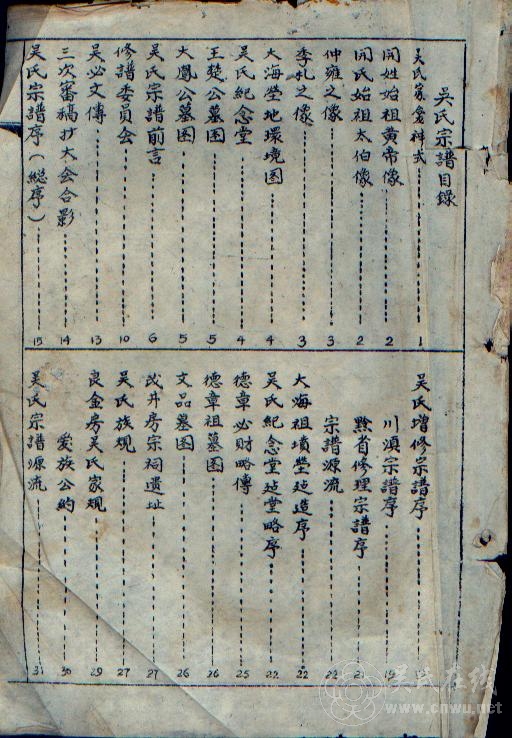 吳氏宗譜目錄
吴氏家神式 1
開姓始祖黄帝像 2
開氏始祖太伯像 2
仲雍之像 3
季札之像 3
大海塋地環境图 4
吳氏紀念堂 4
王楚公墓图 5
大鳳公墓图 5
吳氏宗譜前言 6
修譜委員会 10
吳必文傳 13
三次審稿扩大会合影 14
吳氏宗譜序（總序） 15
吳氏增修宗譜序
川滇宗譜序 19
黔省修理宗譜序
宗譜源流 22
大海祖墳塋建造序 22
吳氏紀念堂建堂略序 22
德章必财略傳 25
德章祖墓图 26
文品墓图 26
井房宗祠遺址 27
吳氏族規 27
良金房吳氏家規 29
愛族公約 30
吳氏宗譜源流 31
吴氏在线
www.cnwu.net